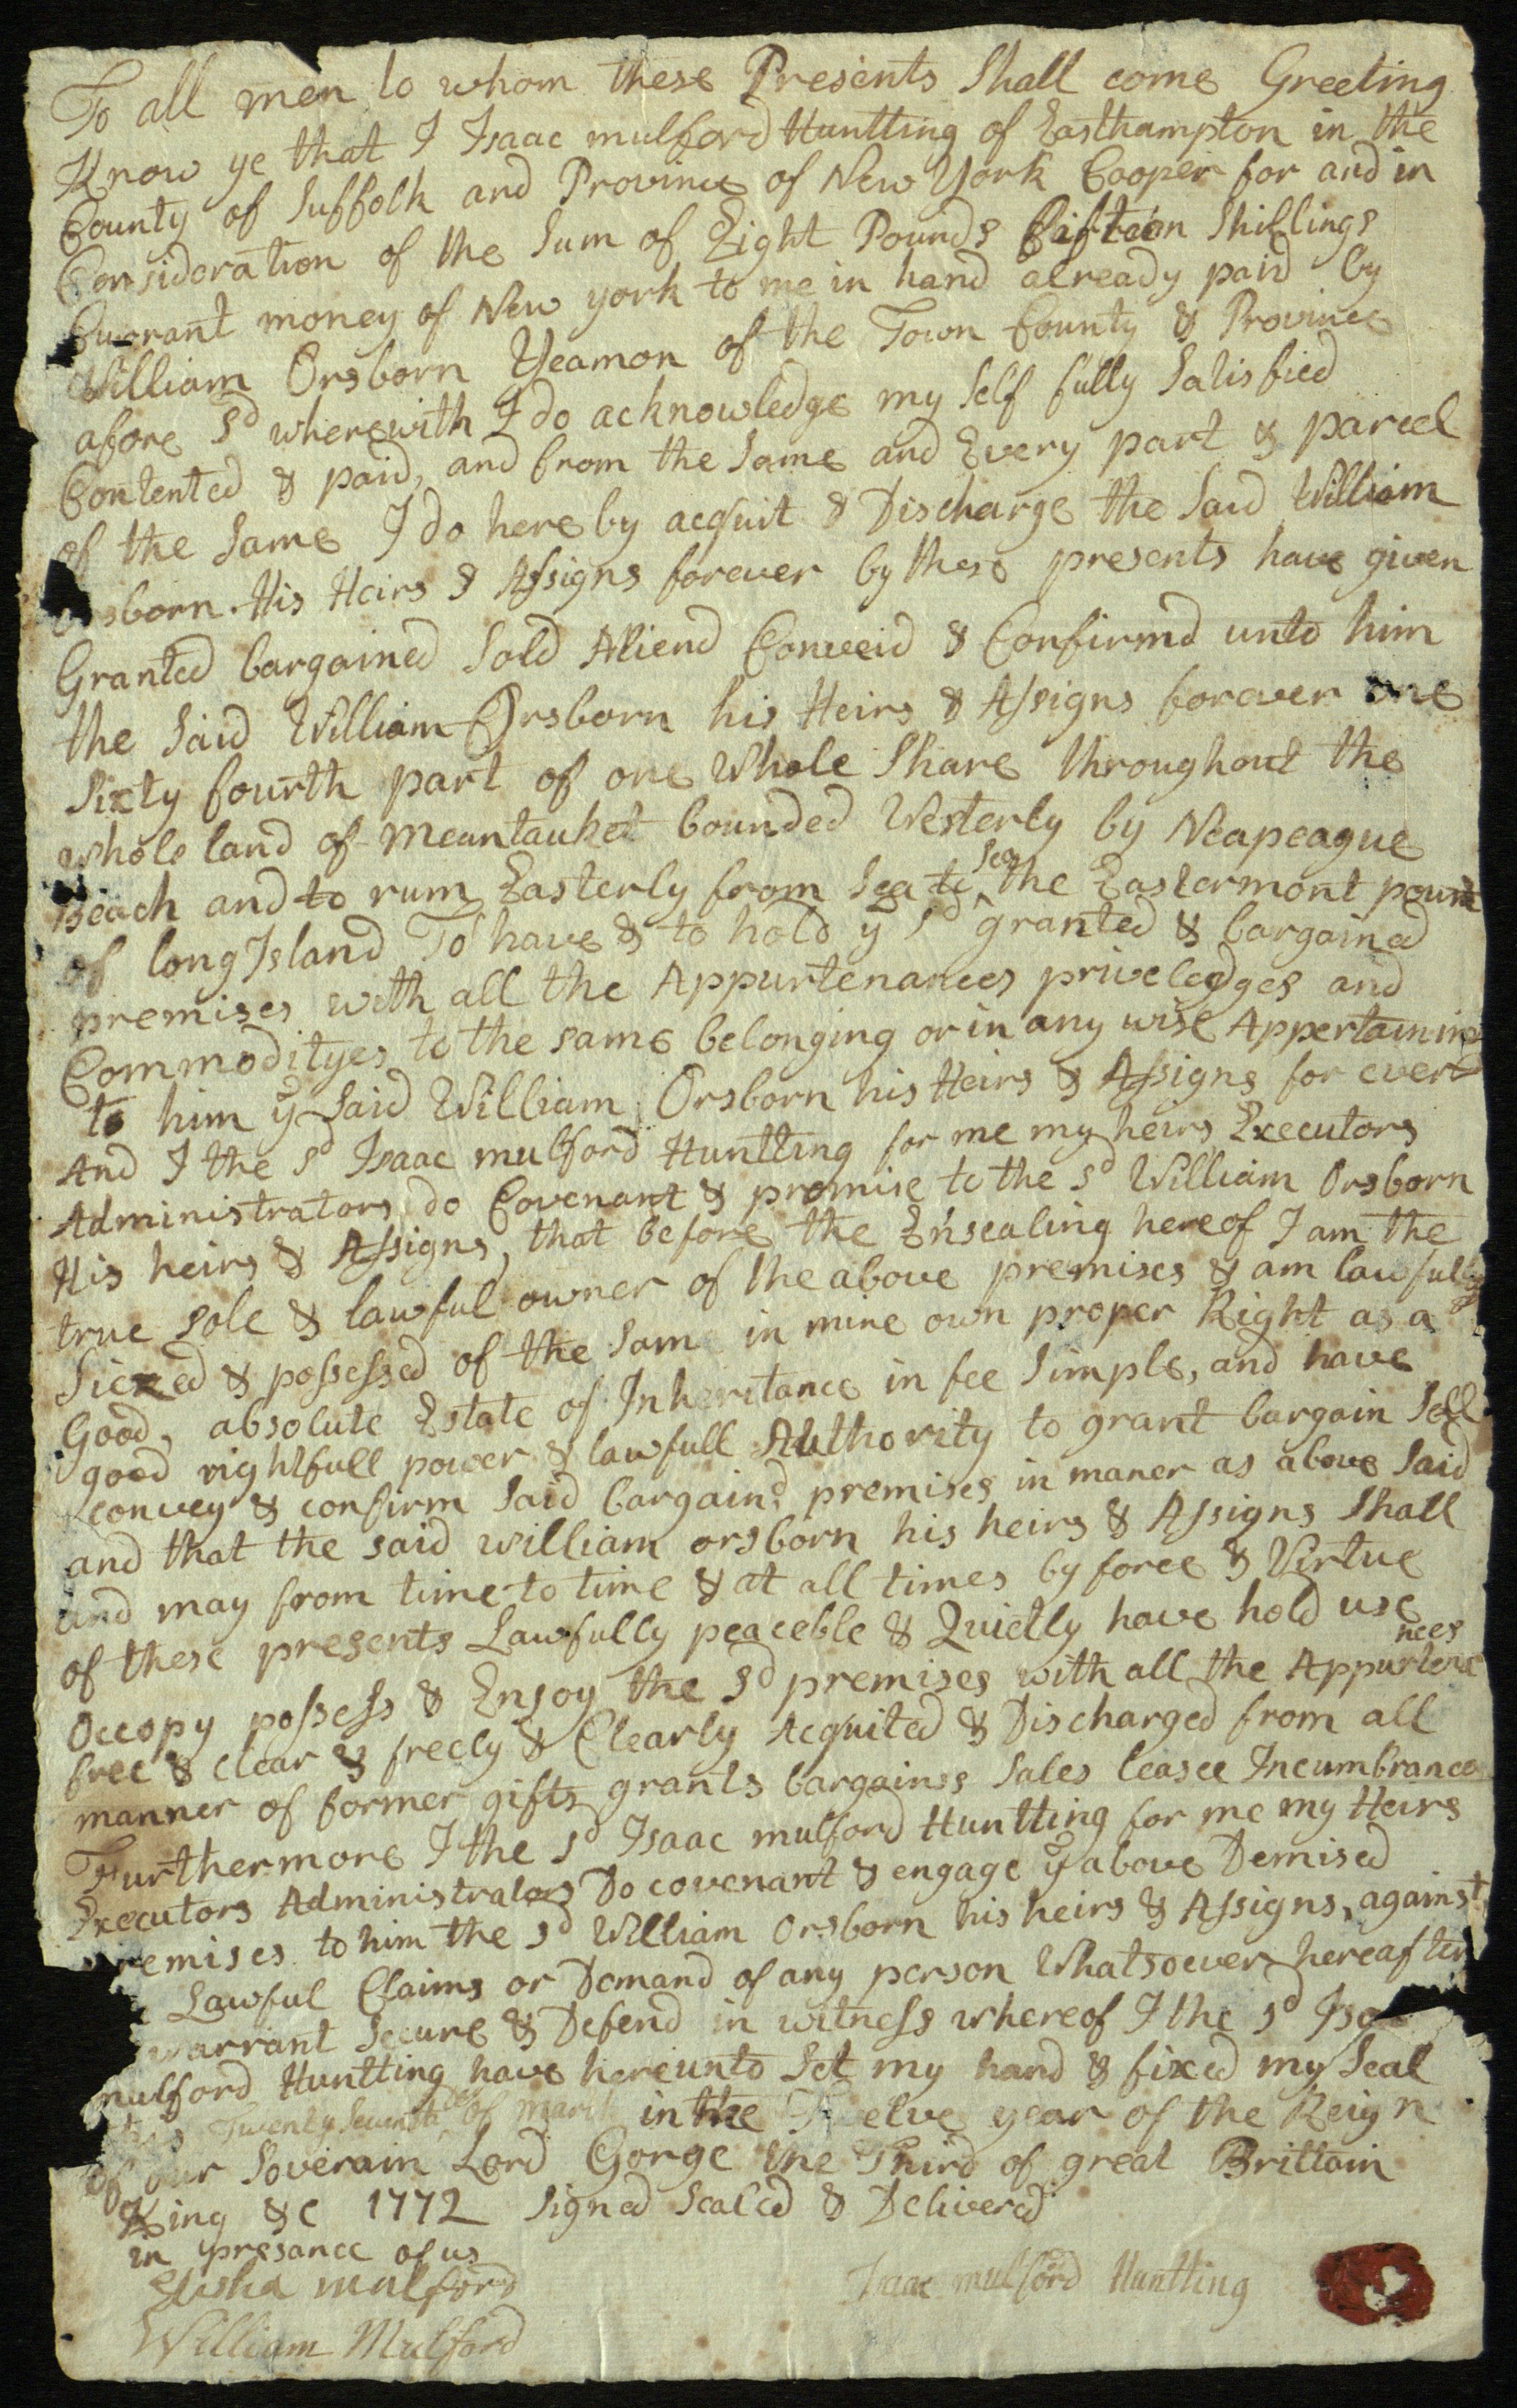 To all men to whom these Presents Shall come Greeting
Know ye that I Isaac mulford Huntting of Easthampton in the
County of Suffolk and Province of New York Cooper for and in
Consideration of the Sum of Eight Pounds fifteen Shillings
Currant money of New york to me in hand already paid by
William Orsborn Yeamon of the Town County & Province
afore Sd wherewith I do acknowledge my Self fully Satisfied
Contented & paid, and from the Same and Every part & parcel
of the Same I do here by acquit & Discharge the Said William
orsborn His Heirs & Assigns forever by these presents have given
Granted bargained Sold Aliend Conveid & Confirmd unto him
the Said William Orsborn his Heirs & Assigns forever one
Sixty fourth part of one Whole Share throughout the
whole land of meantauket bounded Westerly by Neapeague
Beach and to rum Easterly from Sea to Sea the Eastermont point
of long Island To have & to hold ye sd granted & bargained
premises with all the Appurtenances priveledges and
Commodityes to the same belonging or in any wise Appertaining
to him ye Said William Orsborn his Heirs & Assigns for ever
And I the sd Isaac mulford Huntting for me my heirs Executors
Administrators do Covenant & promise to the sd William Orsborn
His heirs & Assigns, that before the Ensealing hereof I am the
true sole & lawful owner of the above premises & am lawfully
Siezed & possessed of the Same in mine own proper Right as a
Good, absolute Estate of Inheritance in fee Simple, and have
good rightfull power & lawfull Authority to grant bargain Sell
convey & confirm Said bargaind premises in maner as above Said
and that the said william orsborn his heirs & Assigns Shall
and may from time to time & at all times by force & Virtue
of these presents Lawfully peaceble & Quietly have hold use
Occopy possess & Enjoy the Sd premises with all the Appurtenances
free & clear & freely & Clearly Acquited & Discharged from all
manner of former gifts grants bargains Sales leasee Incumbrances
Furthermore I the sd Isaac mulford Huntting for me my Heirs
Executors Administrators Do covenant & engage ye above Demised
premises to him the sd William Orsborn his heirs & Assigns, against
Lawful Claims or Demand of any person Whatsoever hereafter
warrant Secure & Defend in witness whereof I the sd Isaac
mulford Huntting have hereunto Set my hand & fixed my Seal
this Twenty Seventh of march in the Twelve year of the Reign
of our Soverain Lord Gorge the Third of great Brittain
King &c 1772 Signed Sealed & Delivered
in presance of us
Elisha mulford
Isaac mulford Huntting
William Mulford